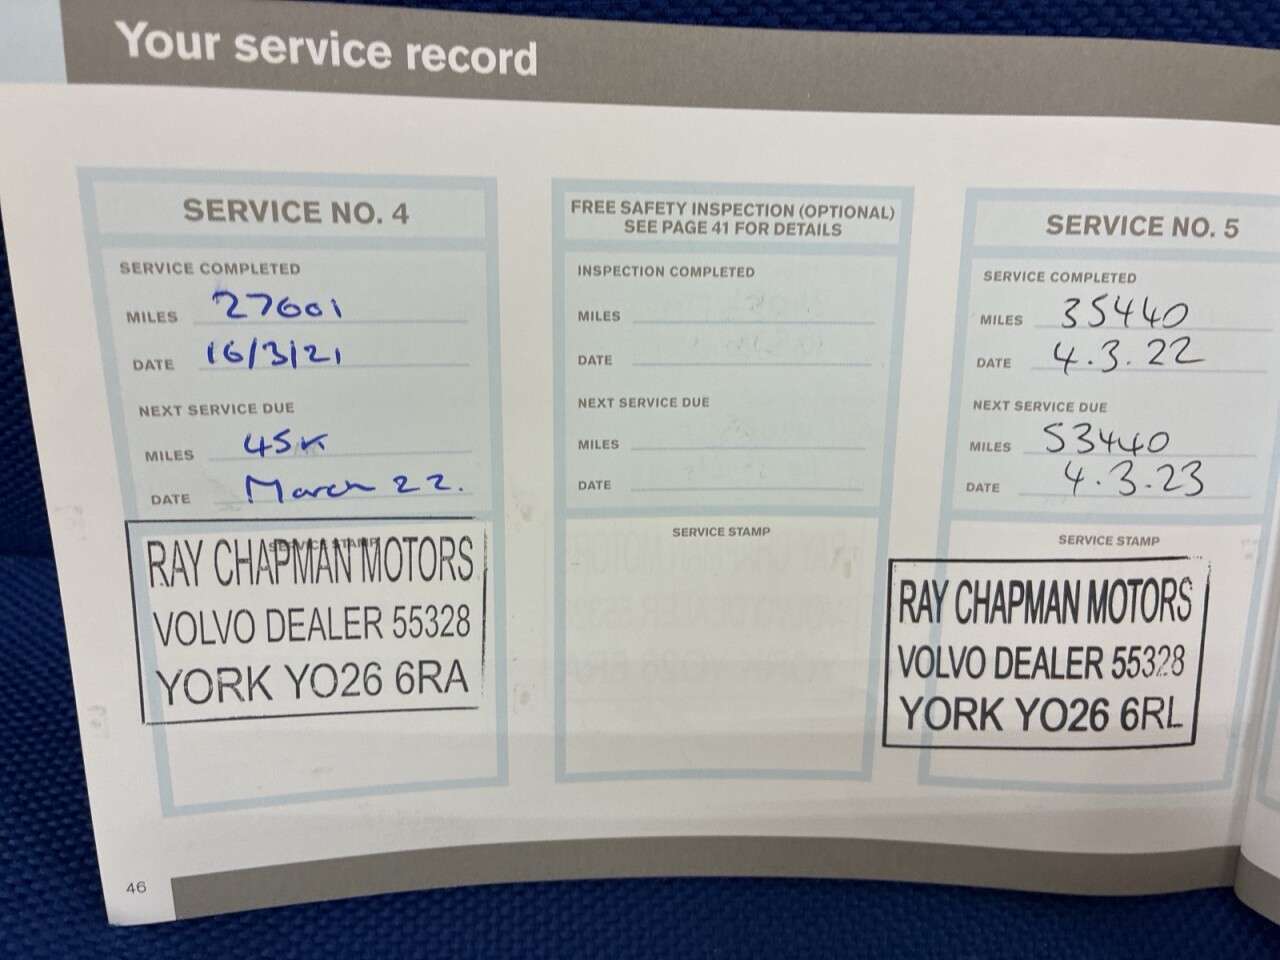 Your service record
SERVICE NO. 4
SERVICE COMPLETED
MILES 27601
DATE 16/3/21
NEXT SERVICE DUE
MILES 45K
DATE March 22.
SERVICE STAMP
RAY CHAPMAN MOTORS
VOLVO DEALER 55328
YORK YO26 6RA
FREE SAFETY INSPECTION (OPTIONAL)
SEE PAGE 41 FOR DETAILS
INSPECTION COMPLETED
MILES
DATE
NEXT SERVICE DUE
MILES
DATE
SERVICE STAMP
SERVICE NO. 5
SERVICE COMPLETED
MILES 35440
DATE 4.3.22
NEXT SERVICE DUE
MILES 53440
DATE 4.3.23
SERVICE STAMP
RAY CHAPMAN MOTORS
VOLVO DEALER 55328
YORK YO26 6RL
46